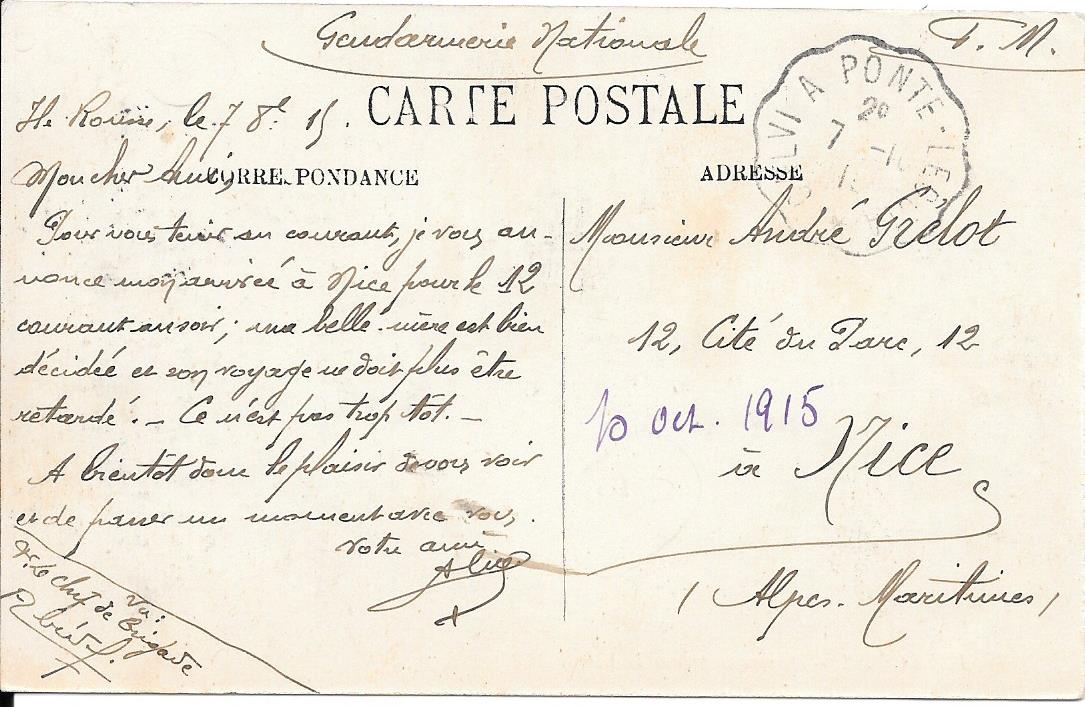 Gendarmerie Nationale
F. M.
CARTE POSTALE
CALVI A PONTE-LECCIA
Ile Rousse, le 7 8bre 15.
CORRESPONDANCE
ADRESSE
Mon cher Ami,
Pour vous tenir au courant, je vous an-
nonce mon arrivée à Nice pour le 12
courant au soir; ma belle-mère est bien
décidée et son voyage ne doit plus être
retardé. — Ce n'est pas trop tôt. —
A bientôt donc le plaisir de vous voir
et de passer un moment avec vous.
Votre ami
Vu:
Le Chef de Brigade
Monsieur André Grelot
12, Cité du Parc, 12
10 oct. 1915
à Nice
(Alpes-Maritimes)